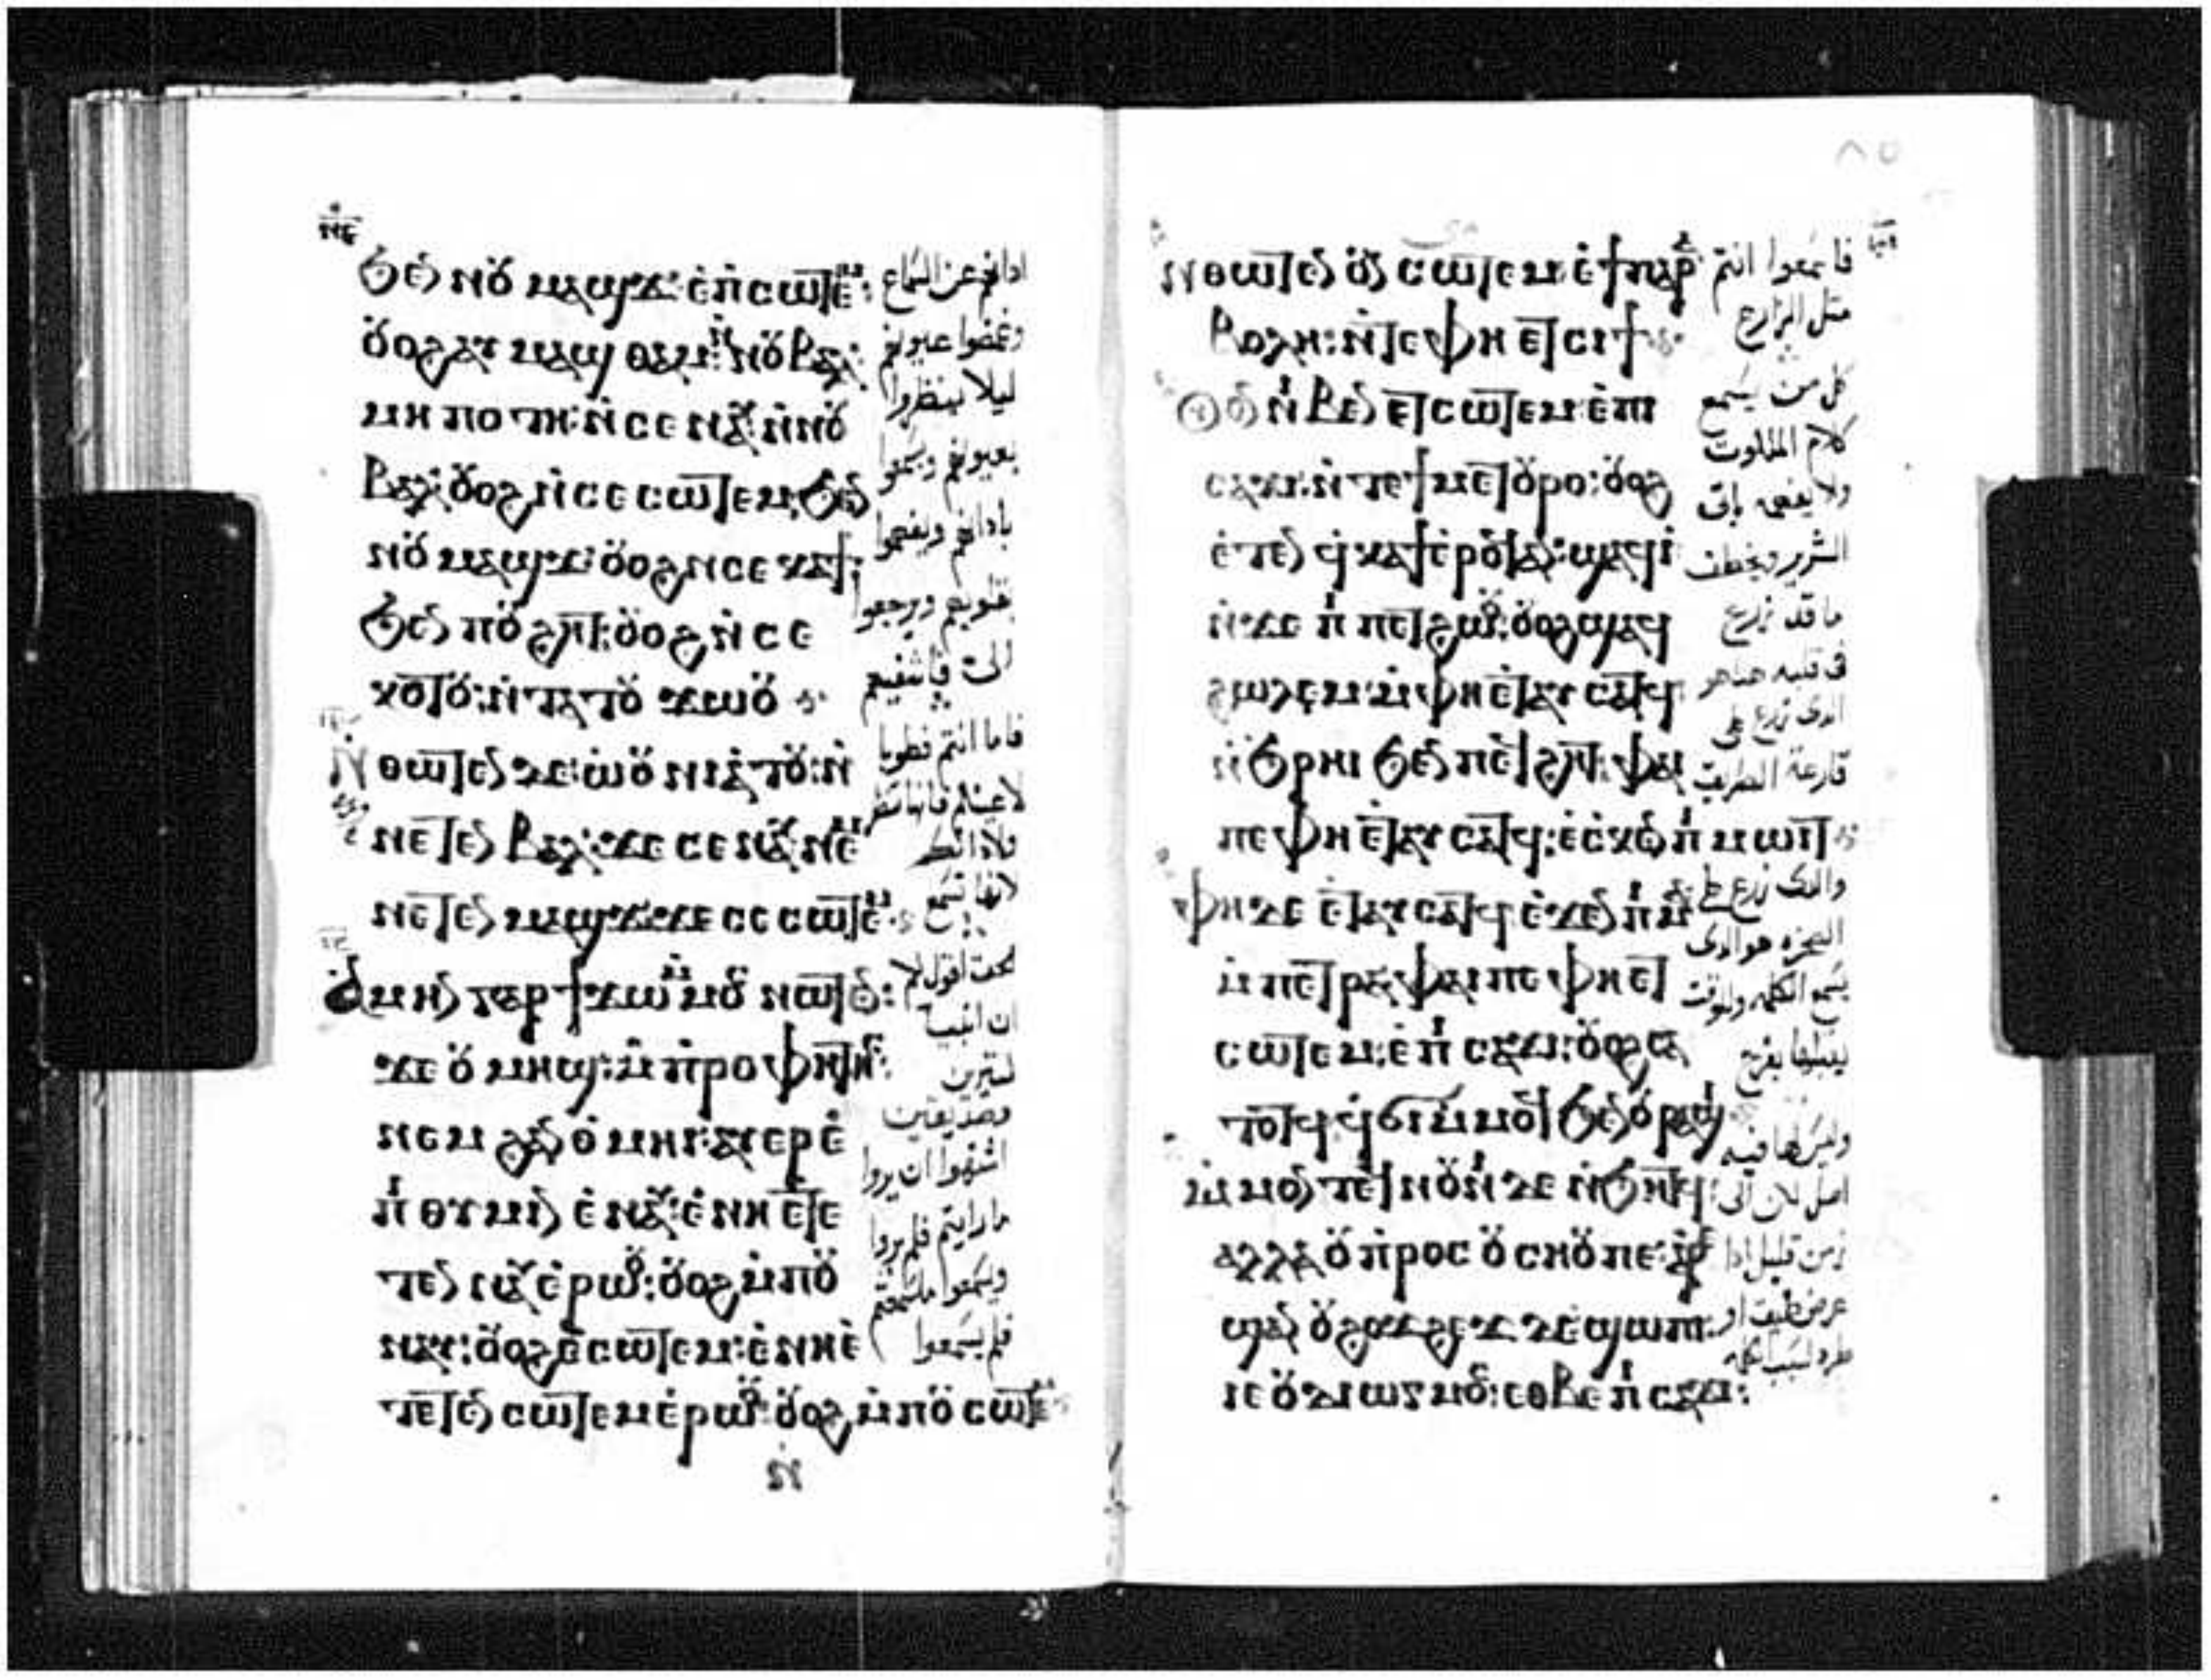 ϧⲉⲛ ⲛⲟⲩ ⲙⲁϣϫ: ⲉ̀ⲡⲥⲱⲧⲉⲙ:
ⲟⲩⲟϩ ⲁⲩ ⲙⲁϣⲑⲁⲙ ⲛ̀ⲛⲟⲩⲃⲁⲗ:
ⲙⲏⲡⲟⲧⲏ: ⲛ̀ⲥⲉⲛⲁⲩ ⲛ̀ⲛⲟⲩ
ⲃⲁⲗ: ⲟⲩⲟϩ ⲛ̀ⲥⲉⲥⲱⲧⲉⲙ ϧⲉⲛ
ⲛⲟⲩ ⲙⲁϣϫ: ⲟⲩⲟϩ ⲛ̀ⲥⲉⲕⲁϯ:
ϧⲉⲛ ⲡⲟⲩϩⲏⲧ: ⲟⲩⲟϩ ⲛ̀ⲥⲉ
ⲕⲟⲧⲟⲩ: ⲛ̀ⲧⲁⲧⲟⲩϫⲱⲟⲩ
ⲛ̀ⲑⲱⲧⲉⲛ ⲇⲉ: ⲱ̀ⲟⲩⲛⲓⲁ̀ⲧⲟⲩ: ⲛ̀
ⲛⲉⲧⲉⲛ ⲃⲁⲗ: ϫⲉ ⲥⲉⲛⲁⲩ ⲛⲉⲙ
ⲛⲉⲧⲉⲛ ⲙⲁϣϫ ϫⲉ ⲥⲉⲥⲱⲧⲉⲙ
ⲁ̀ⲙⲏⲛ ⲅⲁⲣ ϯϫⲱ ⲙ̀ⲙⲟⲥ ⲛⲱⲧⲉⲛ:
ϫⲉ ⲟⲩⲙⲏϣ: ⲙ̀ⲡⲣⲟⲫⲏⲧⲏⲥ:
ⲛⲉⲙ ϩⲁⲛⲟ̀ⲙⲏⲓ: ⲁⲩⲉⲣⲉ̀
ⲡⲓⲑⲩⲙⲓⲛ ⲉ̀ⲛⲁⲩ: ⲉ̀ⲛⲏ ⲉⲧⲉ
ⲧⲉⲛⲛⲁⲩ ⲉ̀ⲣⲱⲟⲩ: ⲟⲩⲟϩ ⲙ̀ⲡⲟⲩ
ⲛⲁⲩ: ⲟⲩⲟϩ ⲉ̀ⲥⲱⲧⲉⲙ: ⲉ̀ⲛⲏⲉ̀
ⲧⲉⲧⲉⲛ ⲥⲱⲧⲉⲙ ⲉ̀ⲣⲱⲟⲩ: ⲟⲩⲟϩ ⲙ̀ⲡⲟⲩⲥⲱⲧⲉⲙ
اذانهم عن السماع
وغمضوا عيونهم
ليلا ينظروا
بعيونهم ويسمعوا
باذانهم ويفهموا
بقلوبهم ويرجعوا
الي فاشفيهم
فاما انتم فطوبا
لاعينكم فانها تنظر
لانها تسمع
الحق اقول لكم
ان انبيا
كثيرين
وصديقين
اشتهوا ان يروا
ما رايتم فلم يروا
ويسمعوا ما سمعتم
فلم يسمعوا
ⲛ̀ⲑⲱⲧⲉⲛ ⲟⲩⲛ ⲥⲱⲧⲉⲙ ⲉ̀ϯⲡⲁⲣⲁ
ⲃⲟⲗⲏ: ⲛ̀ⲧⲉ ⲫⲏ ⲉⲧⲥⲓϯ
ⲟⲩⲟⲛ ⲛⲓⲃⲉⲛ ⲉⲧⲥⲱⲧⲉⲙ ⲉ̀ⲡⲓ
ⲥⲁϫⲓ: ⲛ̀ⲧⲉ ϯⲙⲉⲧⲟⲩⲣⲟ: ⲟⲩⲟϩ
ⲉ̀ⲧⲉⲛ ϥ̀ⲕⲁϯ ⲉ̀ⲣⲟϥ ⲁⲛ: ϣⲁϥⲓ̀
ⲛ̀ϫⲉ ⲡⲓⲡⲉⲧϩⲱⲟⲩ: ⲟⲩⲟϩ ϣⲁϥ
ϩⲱⲗⲉⲙ ⲙ̀ⲫⲏ ⲉ̀ⲧⲁⲩⲥⲁⲧϥ
ⲛ̀ϧⲣⲏⲓ ϧⲉⲛ ⲡⲉϥϩⲏⲧ: ⲫⲁⲓ
ⲡⲉ ⲫⲏ ⲉ̀ⲧⲁⲩⲥⲁⲧϥ: ⲉ̀ⲥⲕⲉⲛ ⲡⲓⲙⲱⲓⲧ
ⲫⲏ ⲇⲉ ⲉ̀ⲧⲁⲩⲥⲁⲧϥ ⲉ̀ϫⲉⲛ ⲡⲓⲙⲁ
ⲙ̀ⲡⲉⲧⲣⲁ: ⲫⲁⲓ ⲡⲉ ⲫⲏ ⲉⲧ
ⲥⲱⲧⲉⲙ: ⲉ̀ⲡⲓⲥⲁϫⲓ: ⲟⲩⲟϩ ⲥⲁ
ⲧⲟⲧϥ ϥ̀ϭⲓ ⲙ̀ⲙⲟϥ ϧⲉⲛ ⲟⲩⲣⲁϣⲓ
ⲙ̀ⲙⲟⲛⲧⲉϥ ⲛⲟⲩⲛⲓ ⲇⲉ ⲛ̀ϧⲏⲧϥ:
ⲁⲗⲗⲁ ⲟⲩⲡⲣⲟⲥ ⲟⲩⲥⲏⲟⲩ ⲡⲉ: ⲁϥ
ϣⲁⲛ ⲟⲩϩⲟϫϩⲉϫ ⲇⲉ ϣⲱⲡⲓ:
ⲓⲉ ⲟⲩⲇⲓⲱⲅⲙⲟⲥ: ⲉⲑⲃⲉ ⲡⲓⲥⲁϫⲓ:
فاسمعوا انتم
مثل الزارع
كل من يسمع
كلام الملكوت
ولا يفهمه ياتي
الشرير ويخطف
ما قد زرع
في قلبه هذا هو
الذي زرع علي
قارعة الطريق
والذي زرع علي
الصخره هو الذي
يسمع الكلمه وللوقت
يقبلها بفرح
وليس لها فيه
اصل لكن الي
زمن قليل اذا
عرض ضيق او
طرد لسبب الكلمه